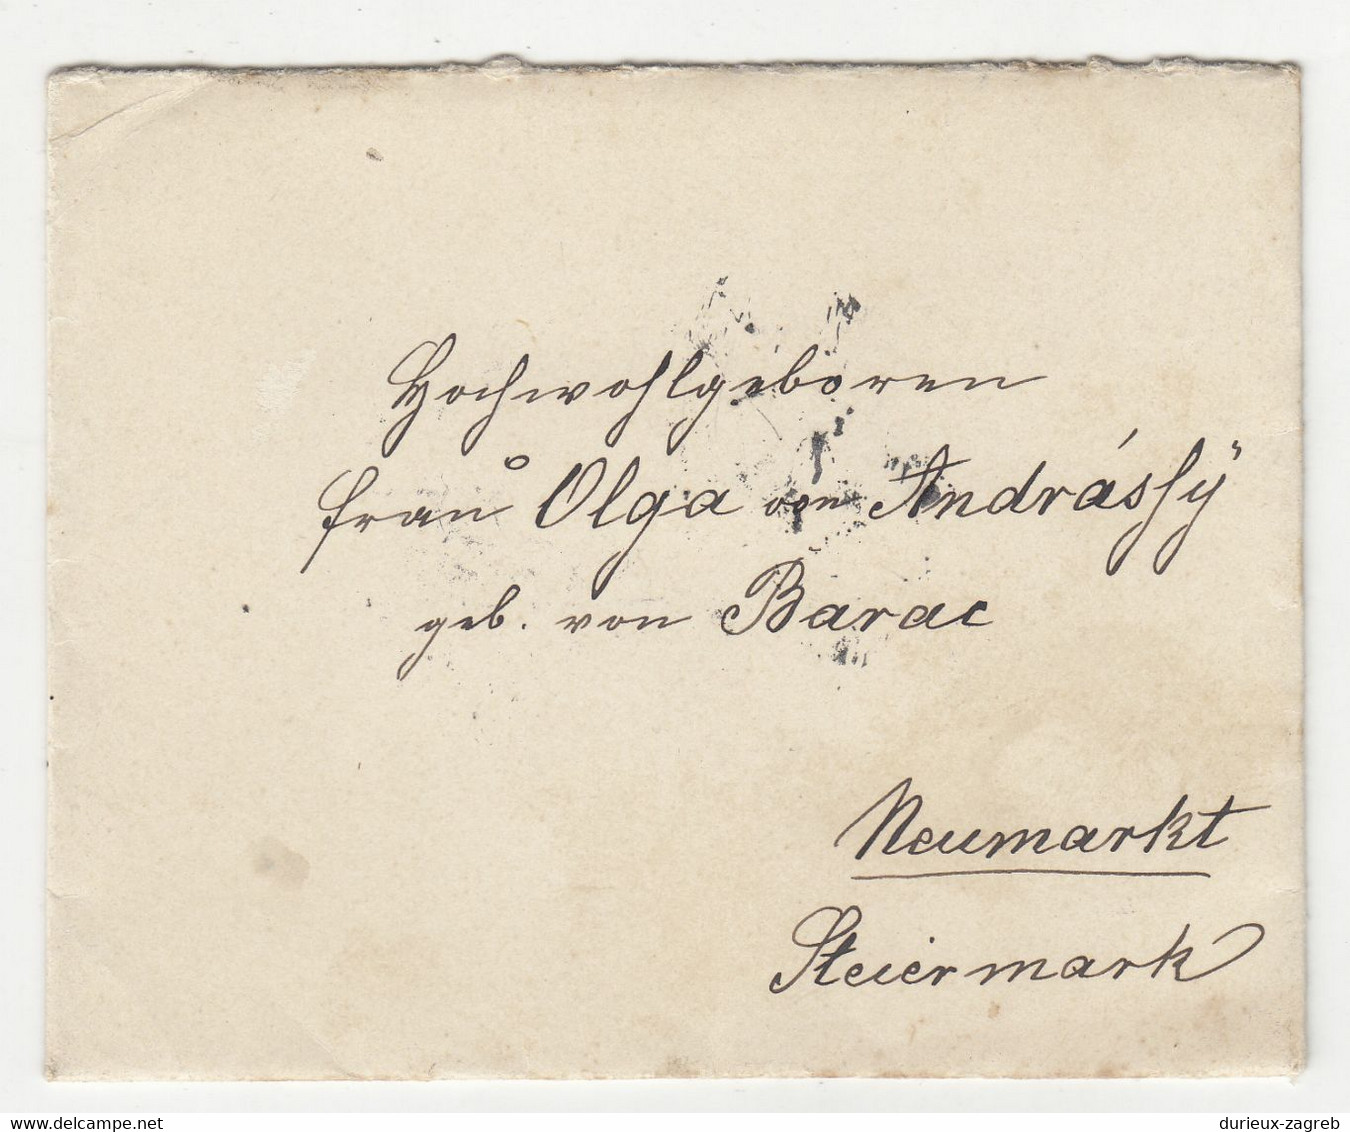 Hochwohlgeboren
Frau Olga von Andrássÿ
geb. von Barac
Neumarkt
Steiermark
www.delcampe.net
durieux-zagreb